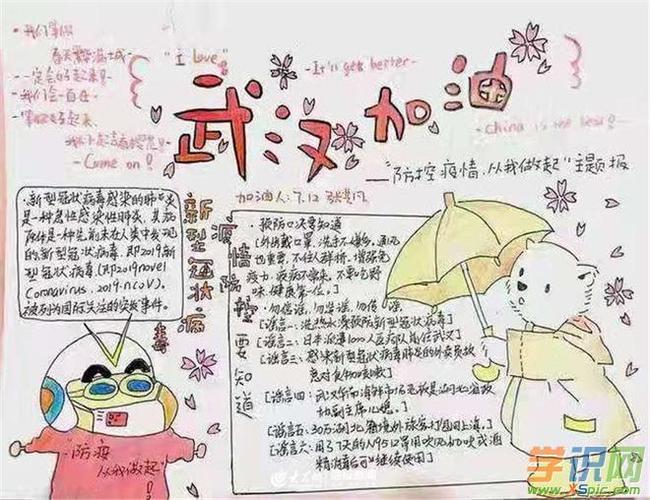 我们会一直在
Come on!
"I love"
It's gets better
武汉加油
China is the best!
"防控疫情,从我做起"主题报
加油人:7.12
新型冠状病毒
疫情防控要知道
·新型冠状病毒感染的肺炎
是一种急性感染性肺炎,其病
原体是一种先前未在人类中发现
的新型冠状病毒,即2019新
型冠状病毒,(即2019novel
Coronavirus,2019.nCoV).
被列为国际关注的突发事件。
·预防口决要知道
[外出戴口罩,洗手不嫌多,通风
也重要,不往人群挤,增强免
疫力,疫病不需来,不要吃野
味,健康第一位。]
·勿信谣,勿造谣,勿传谣,
[谣言一:洗热水澡预防新型冠状病毒]
[谣言二:日本派遣1000人医疗队前往武汉]
[谣言三:感染新型冠状病毒肺炎的外卖员故
意对食物咳嗽]
[谣言四:武汉华南海鲜市场老板是湖北省政
协副主席儿媳。]
[谣言五:30万湖北籍境外旅客打包回上海。]
[谣言六:用了1天的N95口罩用吹风机吹或酒
精消毒后可继续使用]
"防疫
从我做起"
学识网
www.XSpic.com